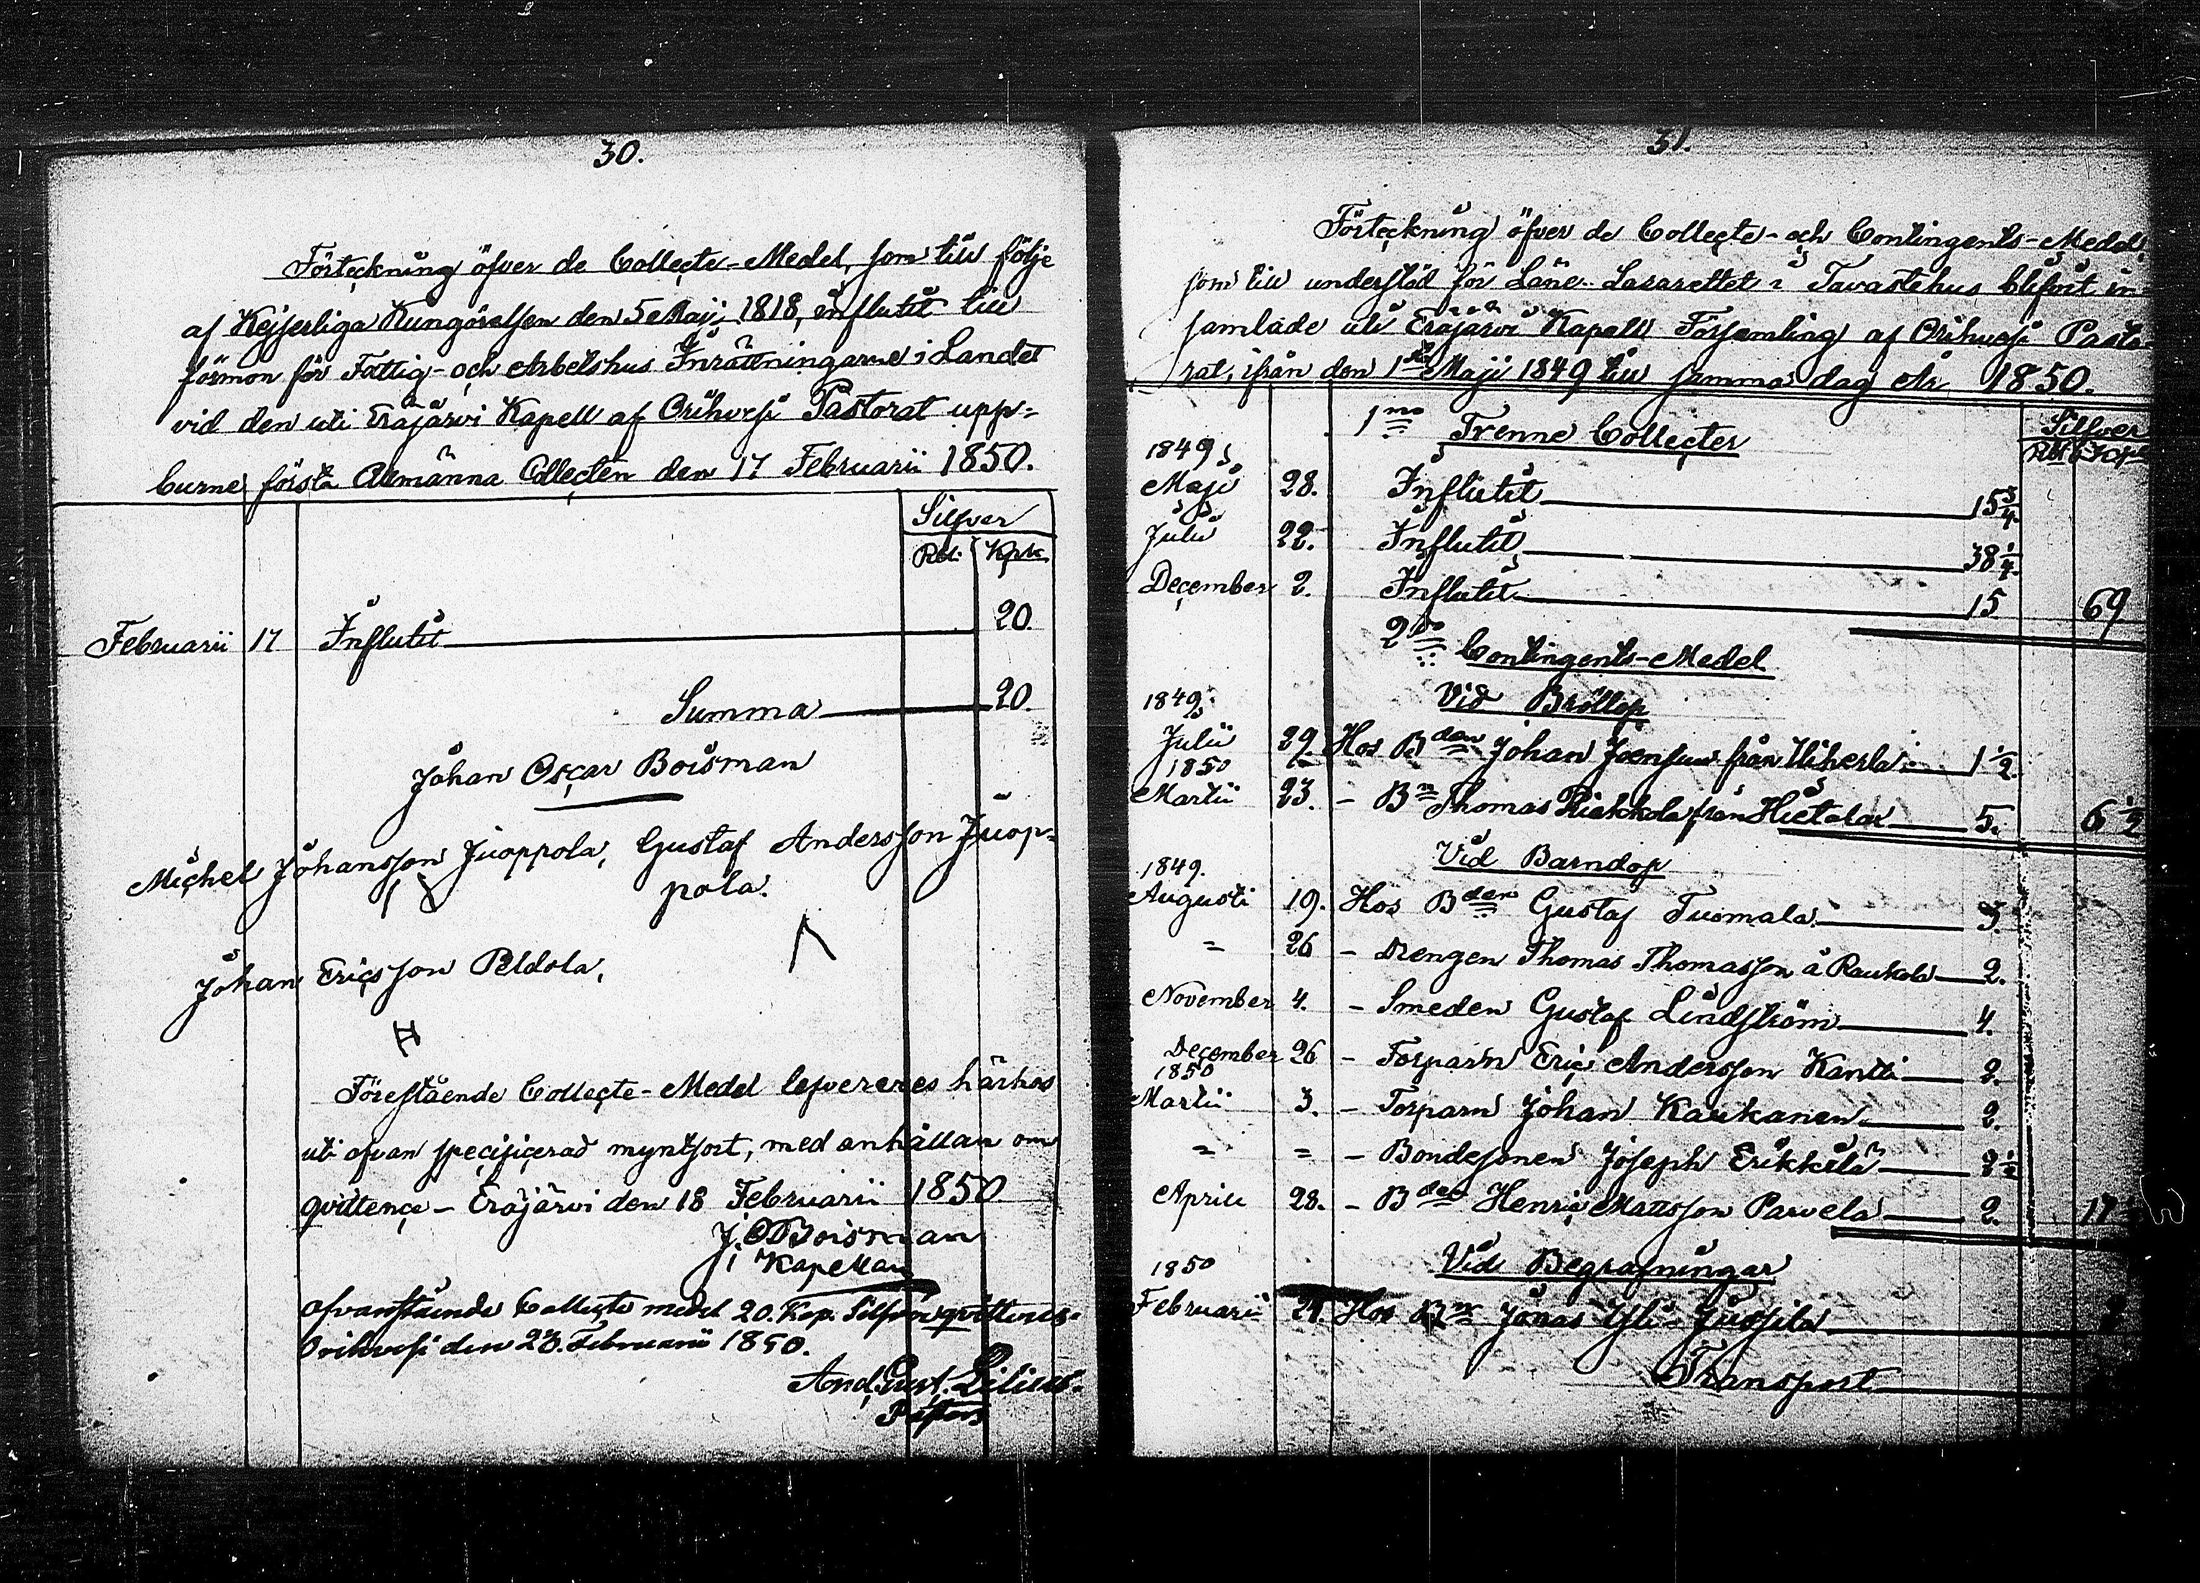 30.
Förteckning öfver de Collecte-Medel, som till följe
af Kejserliga Kungörelsen den 5 Maji 1818, influtit till
förmon för Fattig- och Arbetshus Inrättningarne i Landet
vid den uti Eräjärvi Kapell af Orihvesi Pastorat upp-
burne första Allmänna Collecten den 17 Februarii 1850.
Silfver
Rbl. Kpk
Februarii 17 Influtit 20.
Summa 20.
Johan Oscar Boisman
Michel Johansson Juoppola, Gustaf Andersson Juop-
pola.
Johan Ericsson Peldola,
Förestående Collecte-Medel lefvereres härhos
uti ofvan specificerad myntsort, med anhållan om
qvittence - Eräjärvi den 18 Februarii 1850
J. O Boisman
Kapellan
Ofvanstående Collecte medel 20. Kop. Silfver qvitteras.
Orihvesi den 23. Februarii 1850.
And. Gust. Lilius.
Pastor
31.
Förteckning öfver de Collecte- och Contingents-Medel,
som till understöd för Läns-Lasarettet i Tavastehus blifvit in-
samlade uti Eräjärvi Kapell Församling af Orihvesi Pasto-
rat, ifrån den 1sta Maji 1849 till samma dag År 1850.
Silfver
Rbl Kpk
1mo Trenne Collecter
1849
Maji 28. Influtit 15 3/4
Julii 22. Influtit 38 1/4
December 2. Influtit 15 69
2do Contingents-Medel
Vid Bröllop
1849.
Julii 29. Hos Bden Johan Joensuu från Uiherla 1 1/2
1850
Martii 23. - Bn Thomas Riekkola från Hietala 5. 6 1/2
Vid Barndop
1849.
Augusti 19. Hos Bden Gustaf Tuomala 3
" 26 - Drengen Thomas Thomasson å Raukola 2.
November 4. - Smeden Gustaf Lindström 4.
December 26 - Torparn Eric Andersson Kantti 2.
1850
Martii 3. - Torparn Johan Kaukanen 2.
" " - Bondesonen Joseph Erikkilä 2 1/2
April 28. - Bden Henric Mattsson Parvela 2. 17
Vid Begrafningar
1850
Februarii 24. Hos Bn Jonas Yli-Jussila
Transport